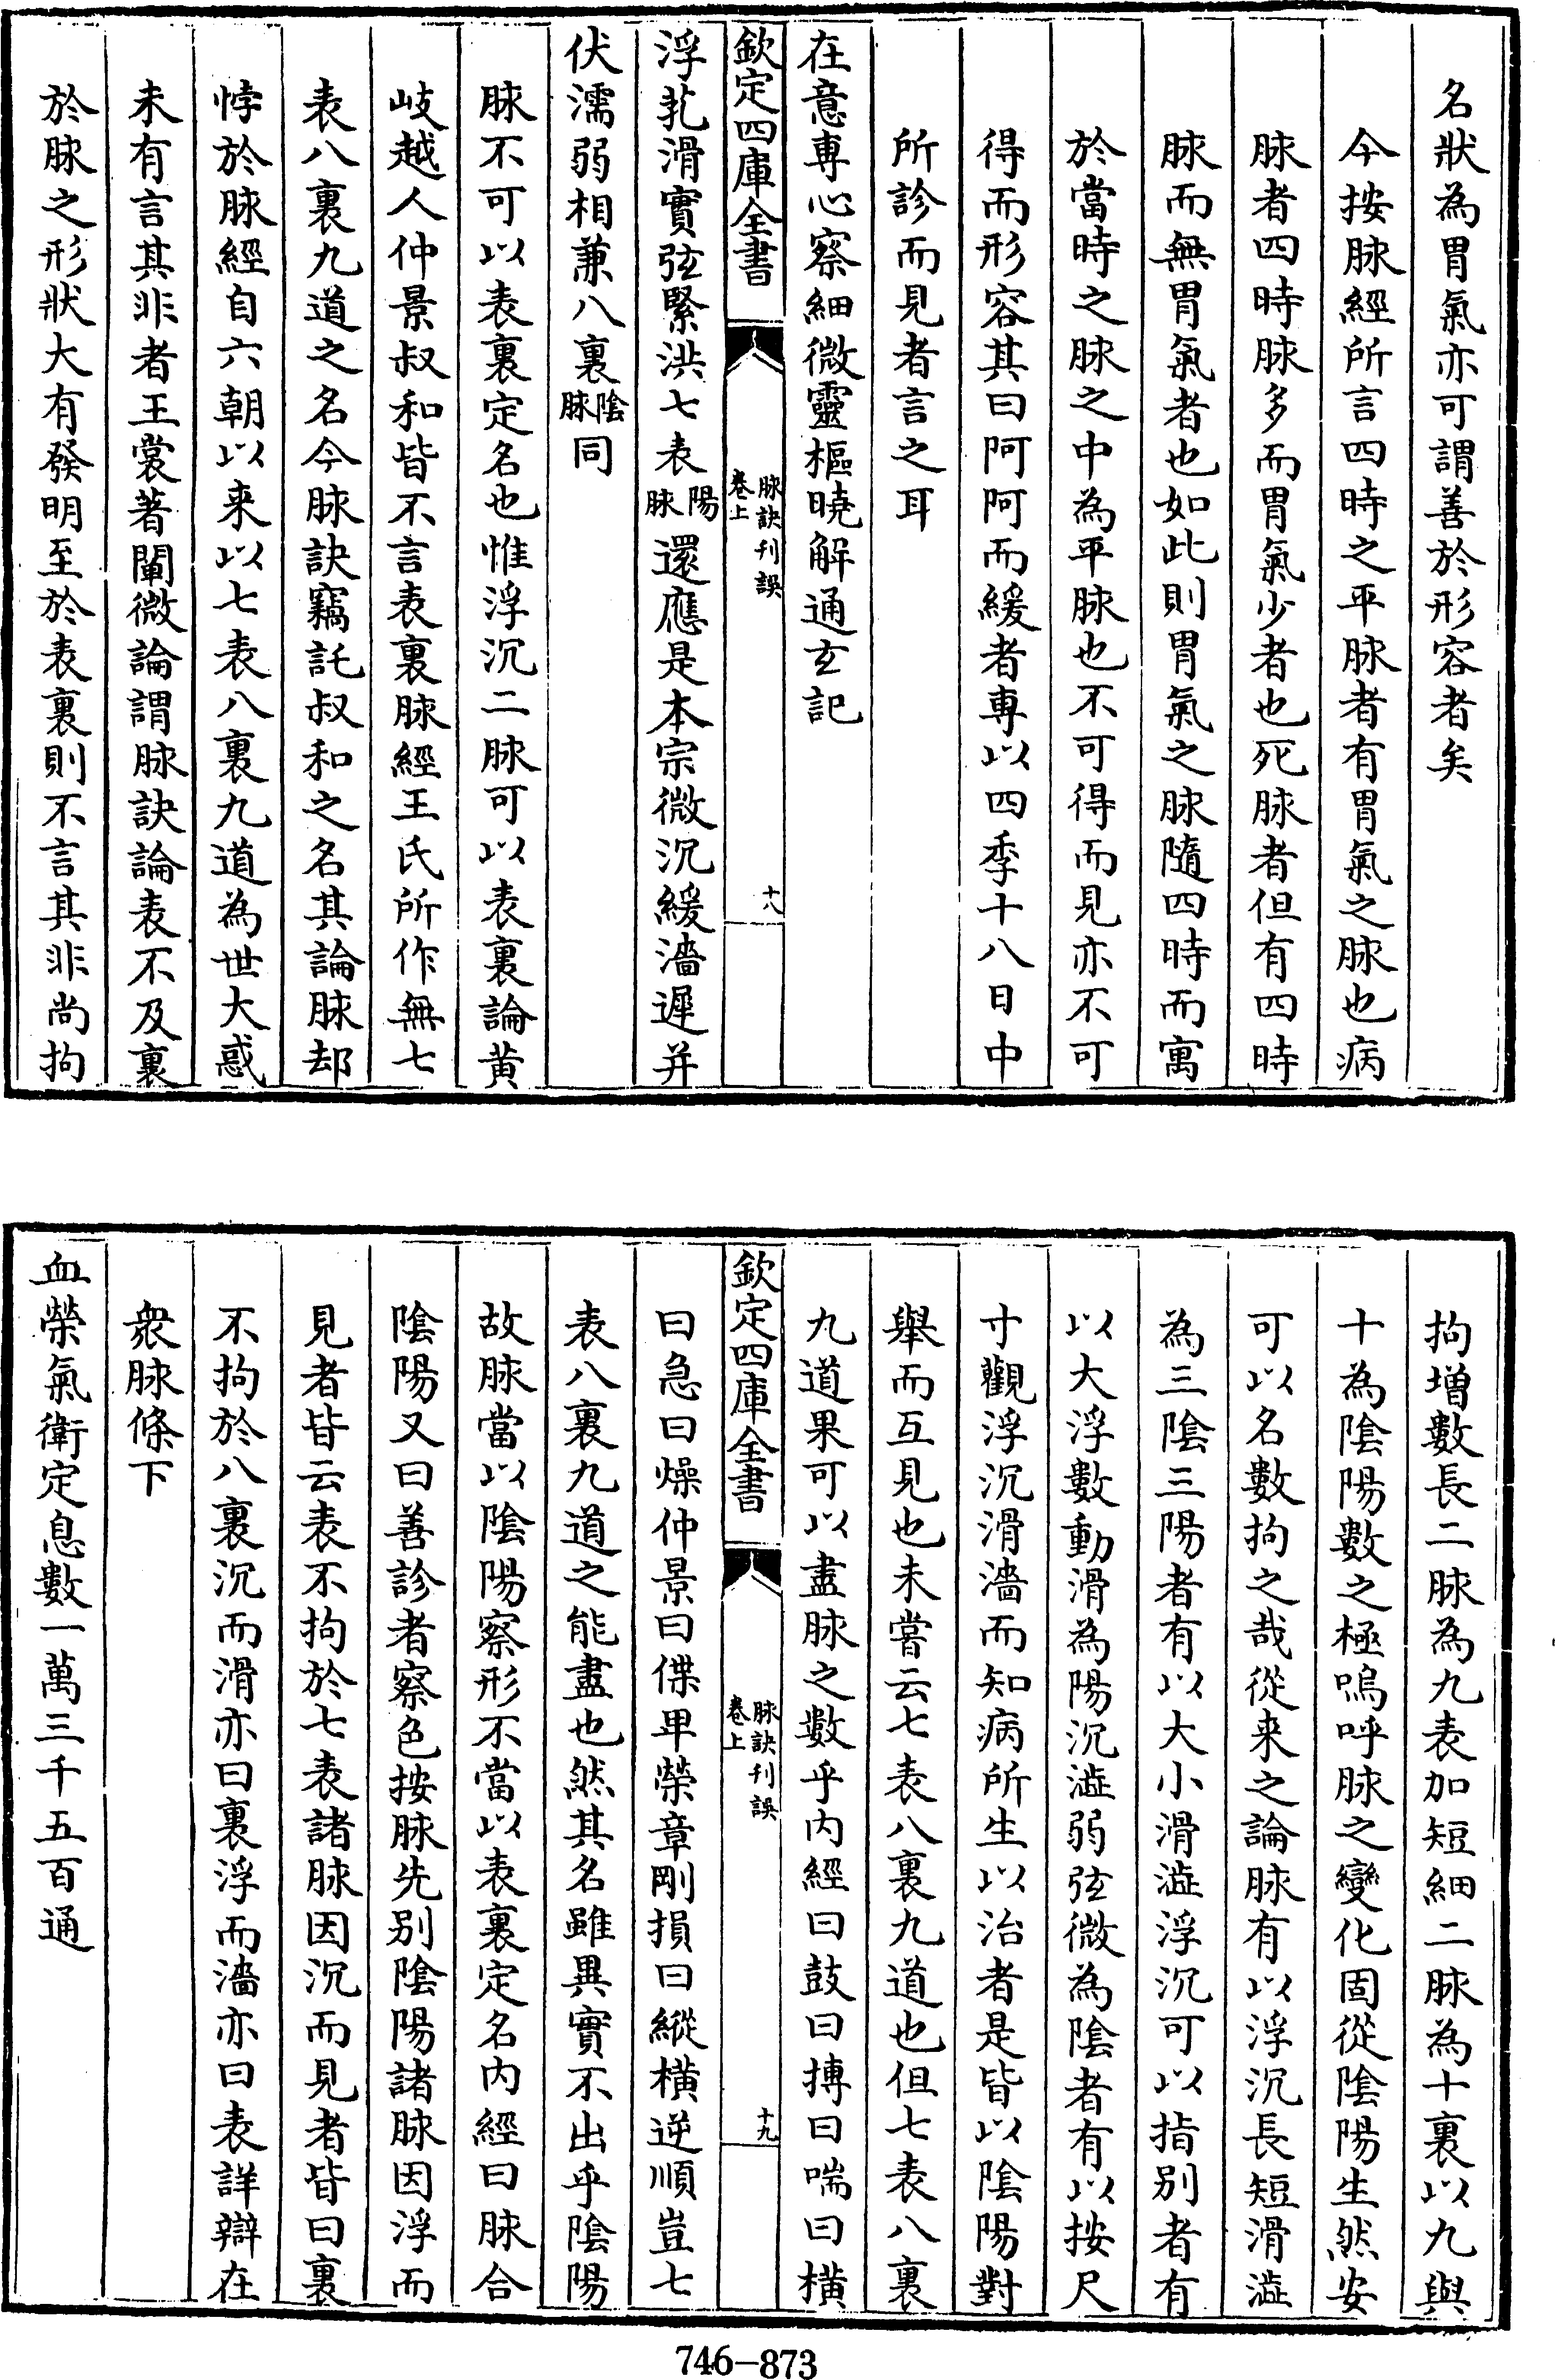 名狀為胃氣亦可謂善於形容者矣
今按脉經所言四時之平脉者有胃氣之脉也病
脉者四時脉多而胃氣少者也死脉者但有四時
脉而無胃氣者也如此則胃氣之脉隨四時而寓
於當時之脉之中為平脉也不可得而見亦不可
得而形容其曰阿阿而緩者專以四季十八日中
所診而見者言之耳
在意專心察細微靈樞曉解通玄記
欽定四庫全書
脉訣刋誤
卷上
十八
浮芤滑實弦緊洪七表陽脉還應是本宗微沉緩濇遲并
伏濡弱相兼八裏陰脉同
脉不可以表裏定名也惟浮沉二脉可以表裏論黃
岐越人仲景叔和皆不言表裏脉經王氏所作無七
表八裏九道之名今脉訣竊託叔和之名其論脉却
悖於脉經自六朝以来以七表八裏九道為世大惑
未有言其非者王裳著闡微論謂脉訣論表不及裏
於脉之形狀大有發明至於表裏則不言其非尚拘
拘增數長二脉為九表加短細二脉為十裏以九與
十為陰陽數之極嗚呼脉之變化固從陰陽生然安
可以名數拘之哉從来之論脉有以浮沉長短滑澁
為三陰三陽者有以大小滑澁浮沉可以指别者有
以大浮數動滑為陽沉澁弱弦微為陰者有以按尺
寸觀浮沉滑濇而知病所生以治者是皆以陰陽對
舉而互見也未嘗云七表八裏九道也但七表八裏
九道果可以盡脉之數乎内經曰鼓曰搏曰喘曰橫
欽定四庫全書
脉訣刋誤
卷上
十九
曰急曰燥仲景曰傑卑榮章剛損曰縱橫逆順豈七
表八裏九道之能盡也然其名雖異實不出乎陰陽
故脉當以陰陽察形不當以表裏定名内經曰脉合
陰陽又曰善診者察色按脉先别陰陽諸脉因浮而
見者皆云表不拘於七表諸脉因沉而見者皆曰裏
不拘於八裏沉而滑亦曰裏浮而濇亦曰表詳辯在
衆脉條下
血榮氣衛定息數一萬三千五百通
746-873